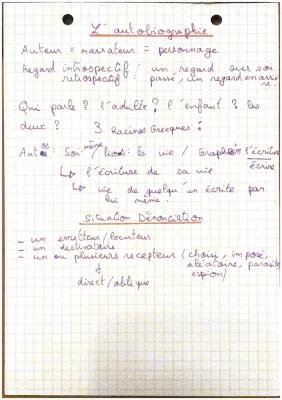 L'autobiographie
Auteur = narrateur = personnage
Regard introspectif : un regard sur soi
rétrospectif : passé, un regard en arriè
re.
Qui parle ? l'adulte ? l'enfant ? les
deux ? 3 Racines Grecques :
Autos : Soi-même / bios : la vie / Graphein l'écriture
écrire
↳ l'écriture de sa vie
↳ vie de quelqu'un écrite par
lui même.
Situation D'énonciation
- un émetteur/locuteur
- un destinataire
- un ou plusieurs recepteur (choisi, imposé,
aléatoire, parasite,
espion)
↓
direct/oblique